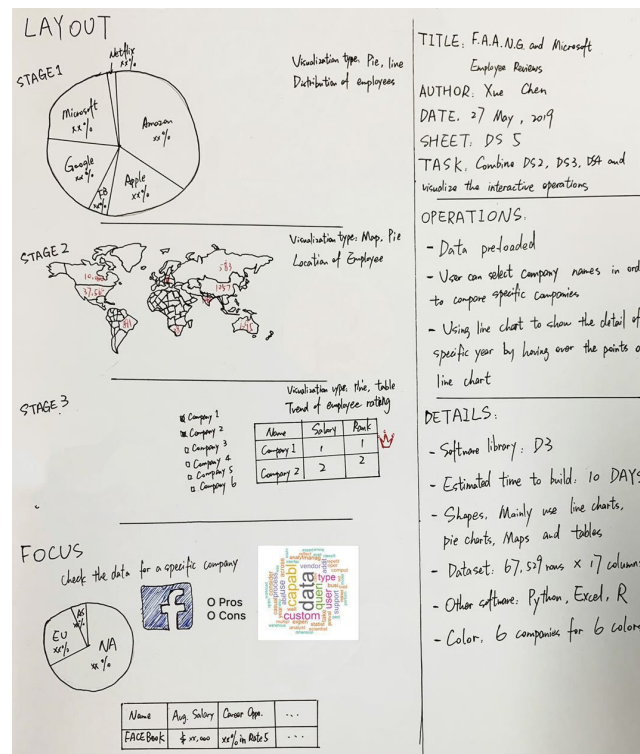 LAYOUT
STAGE 1
Netflix
xx%
Microsoft
xx%
Amazon
xx%
Google
xx%
FB
xx%
Apple
xx%
Visualization type: Pie, line
Distribution of employees
STAGE 2
Visualization type: Map, Pie
Location of Employee
STAGE 3
Visualization type: line, table
Trend of employee rating
Company 1
Company 2
Company 3
Company 4
Company 5
Company 6
Name Salary Rank
Company 1 1 1
Company 2 2 2
FOCUS
check the data for a specific company
AS
EU
xx%
NA
xx%
f
O Pros
O Cons
data
capabl
custom
queri
user
type
vendor
support
Name Aug. Salary Career Oppo. ...
FACEBook $ xx,000 xx% in Rate 5 ...
TITLE: F.A.A.N.G. and Microsoft
Employee Reviews
AUTHOR: Xue Chen
DATE. 27 May, 2019
SHEET: DS 5
TASK. Combine DS2, DS3, DS4 and
visualize the interactive operations
OPERATIONS:
- Data pre-loaded
- User can select Company names in ord
to compare specific companies
- Using line chart to show the detail of
specific year by having over the points o
line chart
DETAILS:
- Software library: D3
- Estimated time to build: 10 DAYS
- Shapes, Mainly use line charts,
pie charts, Maps and tables
- Dataset: 67,529 rows × 17 column
- Other software: Python, Excel, R
- Color, 6 companies for 6 color